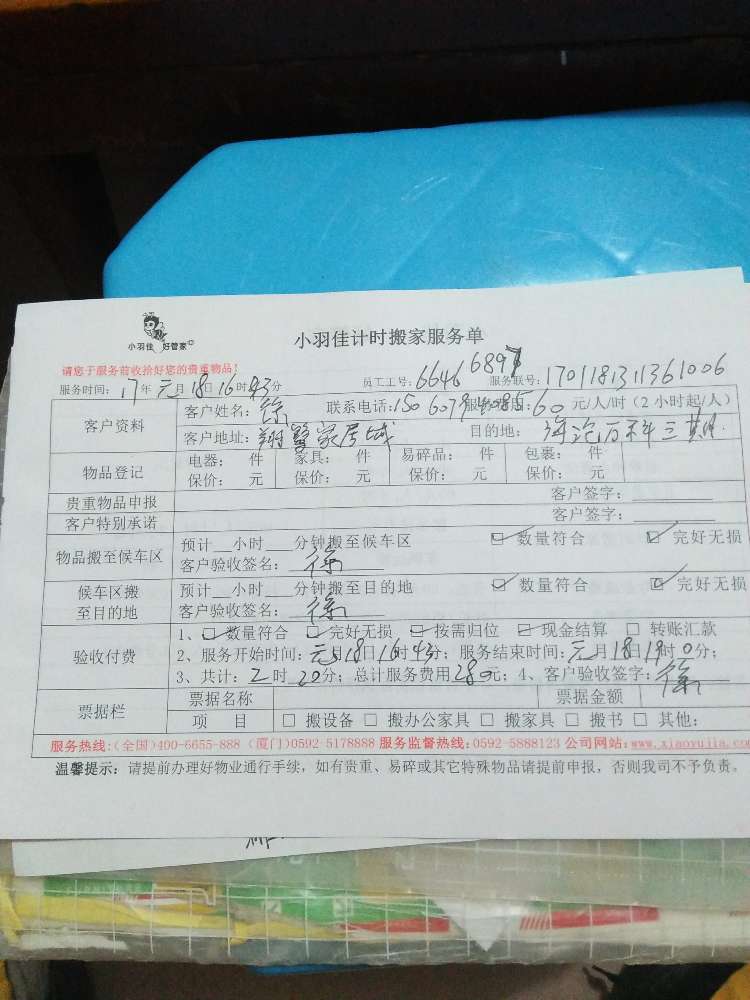 小羽佳 好管家
小羽佳计时搬家服务单
请您于服务前收拾好您的贵重物品！
服务时间：17年元月18日16时43分 员工工号：6646 6897 服务联号：1701181311361006
客户资料
客户姓名：徐 联系电话：150 服务 60元/人/时（2小时起/人）
客户地址：翔鹭家居城 目的地：海沧万科三期
物品登记
电器： 件 家具： 件 易碎品： 件 包裹： 件
保价： 元 保价： 元 保价： 元 保价： 元
贵重物品申报 客户签字：
客户特别承诺 客户签字：
物品搬至候车区
预计__小时___分钟搬至候车区 数量符合 完好无损
客户验收签名：徐
候车区搬至目的地
预计__小时___分钟搬至目的地 数量符合 完好无损
客户验收签名：徐
验收付费
1、数量符合 完好无损 按需归位 现金结算 □ 转账汇款
2、服务开始时间：元月18日16时43分；服务结束时间：元月18日19时0分；
3、共计：2时20分；总计服务费用280元；4、客户验收签字：徐
票据栏
票据名称 票据金额
项 目 □ 搬设备 □ 搬办公家具 □ 搬家具 □ 搬书 □ 其他：
服务热线：（全国）400-6655-888（厦门）0592 5178888 服务监督热线：0592-5888123 公司网站：www.xiaoyujia.com
温馨提示：请提前办理好物业通行手续，如有贵重、易碎或其它特殊物品请提前申报，否则我司不予负责。